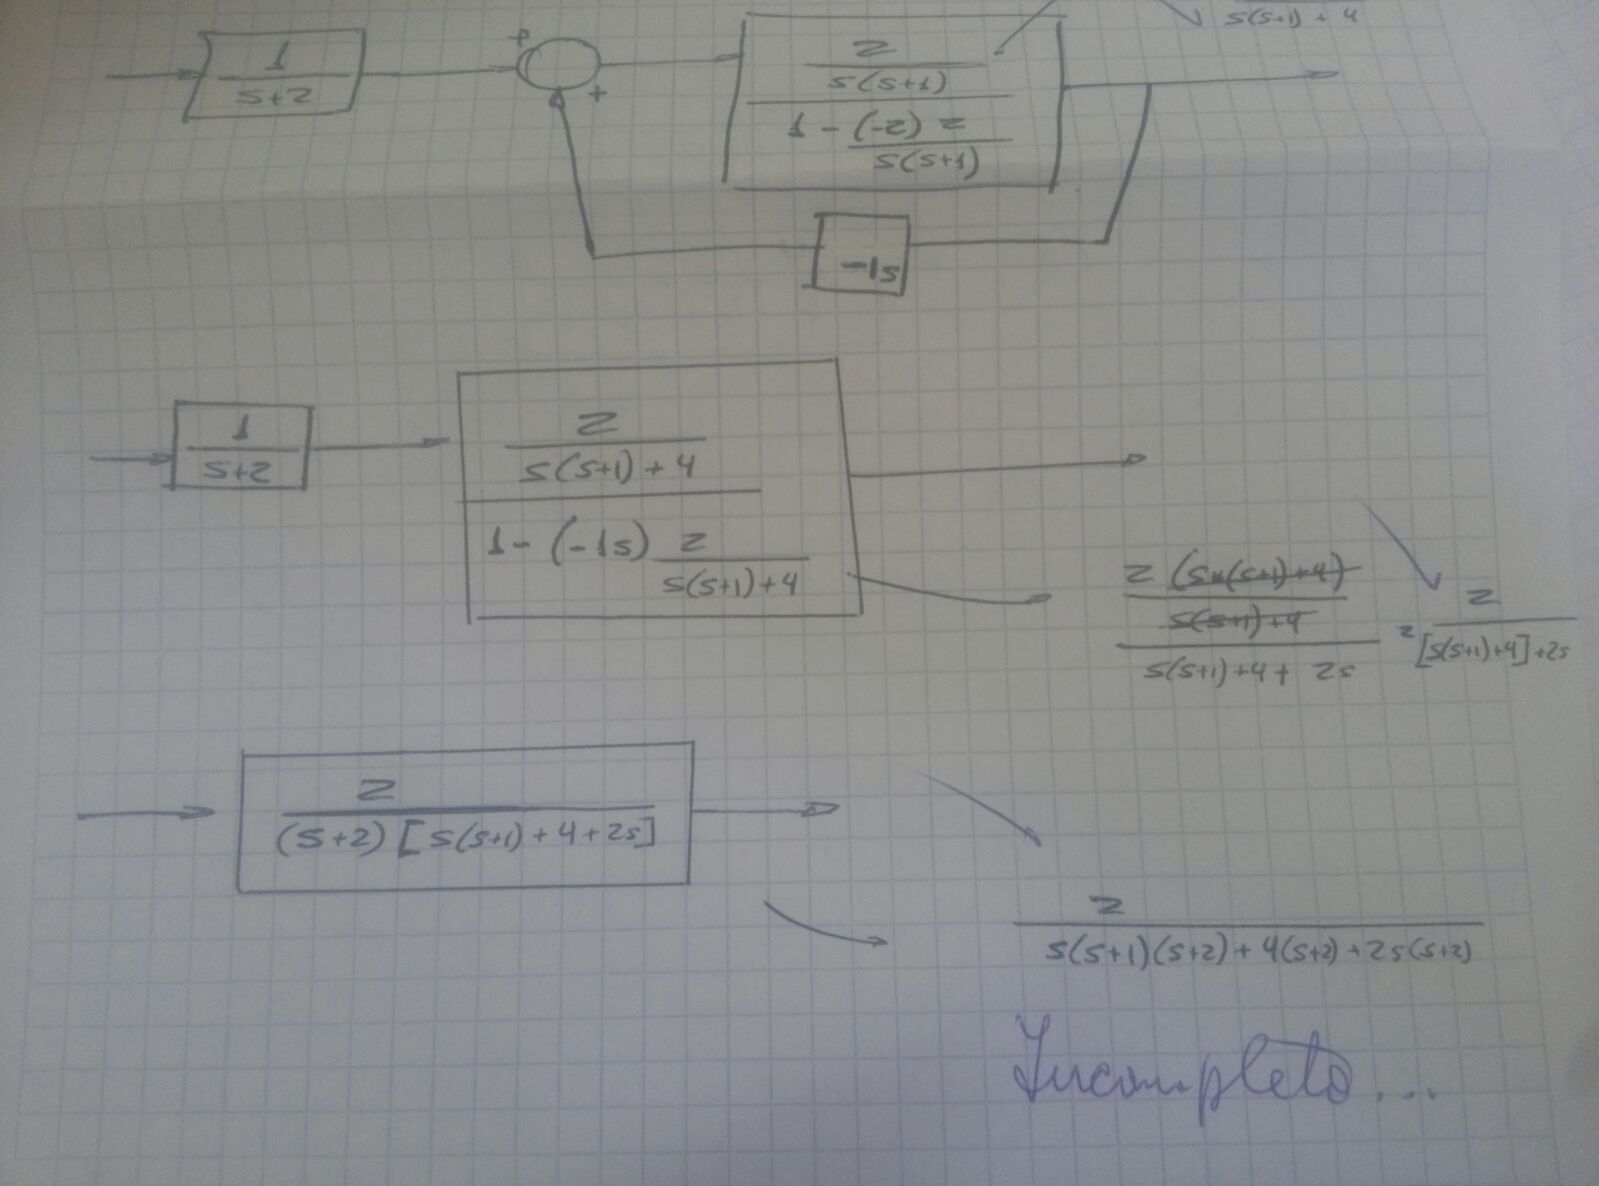 s(s+1) + 4
1
s+2
+
+
2
s(s+1)
1 - (-2) 2
s(s+1)
-1s
1
s+2
2
s(s+1) + 4
1 - (-1s) 2
s(s+1)+4
2 (s(s+1)+4)
s(s+1)+4
s(s+1)+4+ 2s
=
2
[s(s+1)+4]+2s
2
(s+2) [s(s+1) + 4 + 2s]
2
s(s+1)(s+2) + 4(s+2) + 2s(s+2)
Incompleto...